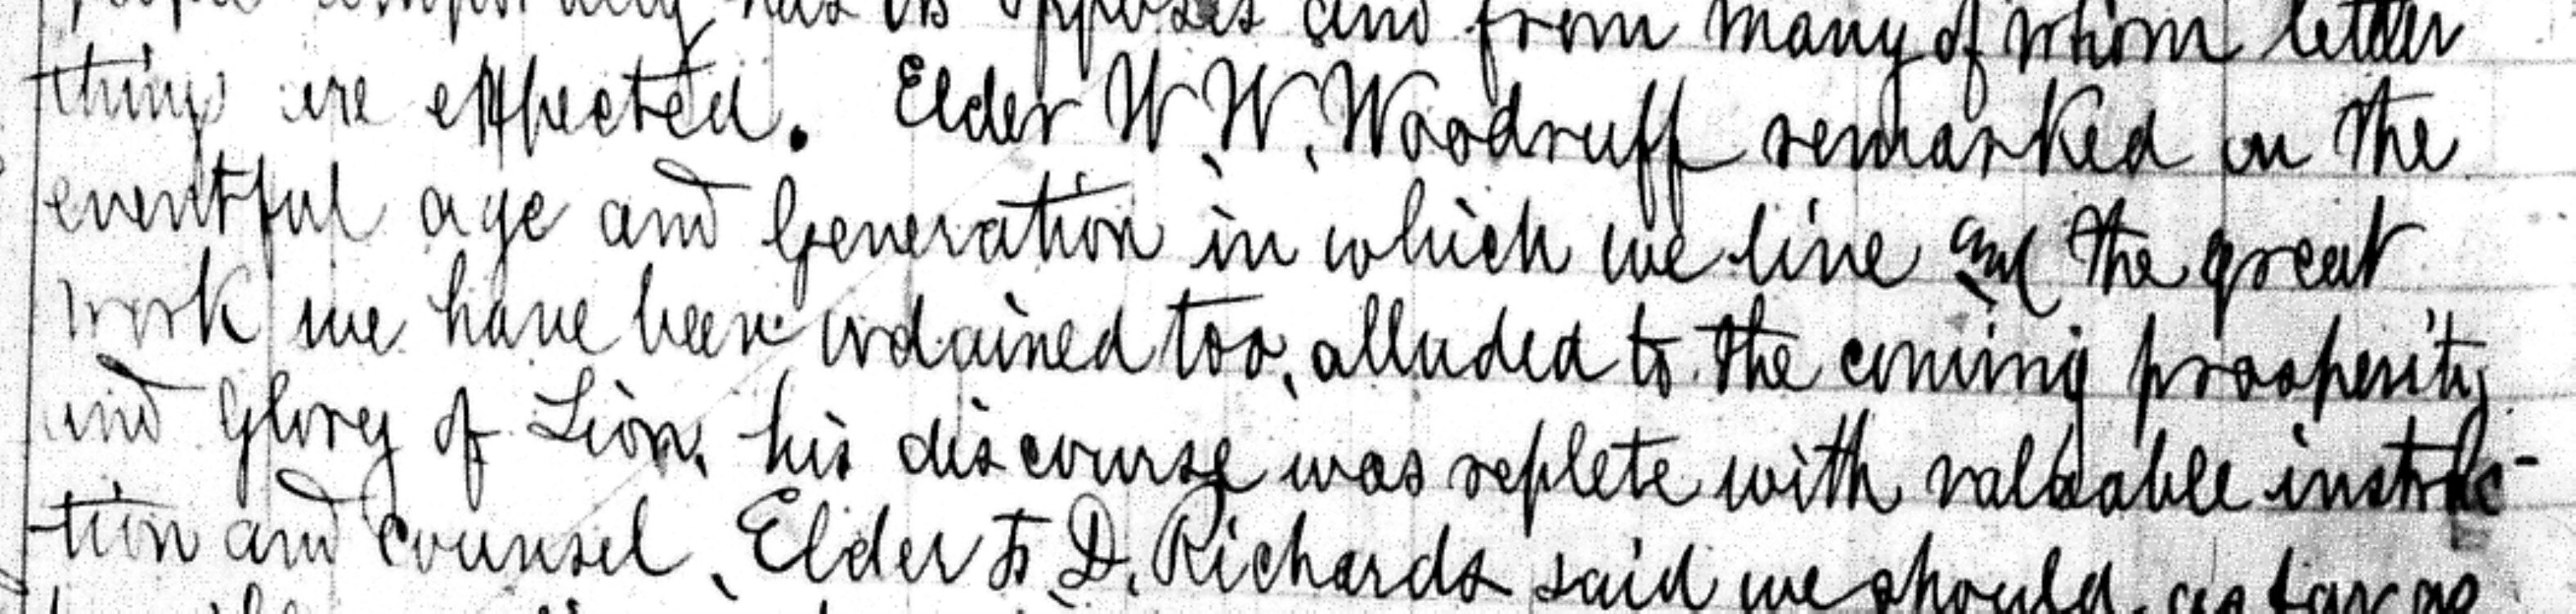 has its opposes and from many of whom better
things are expected. Elder W. W. Woodruff remarked on the
eventful age and Generation in which we live and the great
work we have been ordained too, alluded to the coming prosperity
and Glory of Zion, his discourse was replete with valuable instruc-
tion and counsel, Elder F. D. Richards said we should, as far as